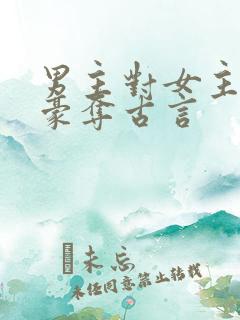 男主對女主
豪奪古言
未忘
未经同意禁止转载